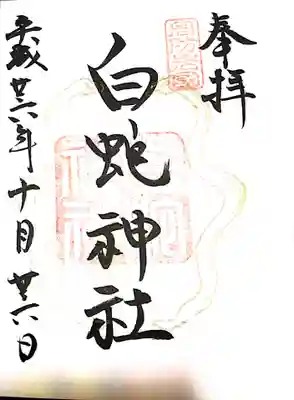 奉拝
白蛇神社
平成廿六年十月廿六日